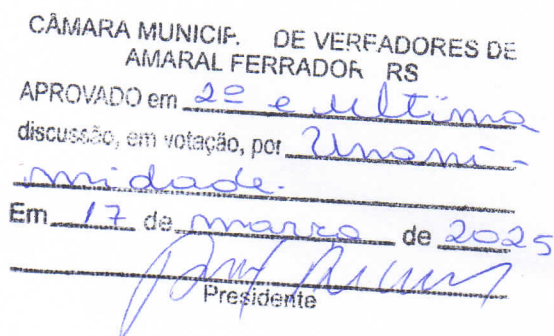 CÂMARA MUNICIP. DE VERFADORES DE
AMARAL FERRADOR RS
APROVADO em 2º e ultima
discussão, em votação, por Unani-
imidade.
Em 17 de março de 2025
Presidente